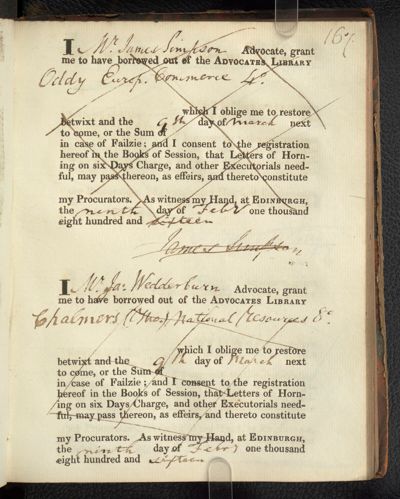 167.
I Mr. James Simpson Advocate, grant
me to have borrowed out of the ADVOCATES LIBRARY
Oddy Europ. Commerce 4o.
which I oblige me to restore
betwixt and the 9th day of March next
to come, or the Sum of
in case of Failzie; and I consent to the registration
hereof in the Books of Session, that Letters of Horn-
ing on six Days Charge, and other Executorials need-
ful, may pass thereon, as effeirs, and thereto constitute
my Procurators. As witness my Hand, at EDINBURGH,
the ninth day of Febr one thousand
eight hundred and sixteen
James Simpson
I Mr. Ja: Wedderburn Advocate, grant
me to have borrowed out of the ADVOCATES LIBRARY
Chalmers (Thos.) National Resources 8o.
which I oblige me to restore
betwixt and the 9th day of March next
to come, or the Sum of
in case of Failzie; and I consent to the registration
hereof in the Books of Session, that Letters of Horn-
ing on six Days Charge, and other Executorials need-
ful, may pass thereon, as effeirs, and thereto constitute
my Procurators. As witness my Hand, at EDINBURGH,
the ninth day of Febr one thousand
eight hundred and sixteen